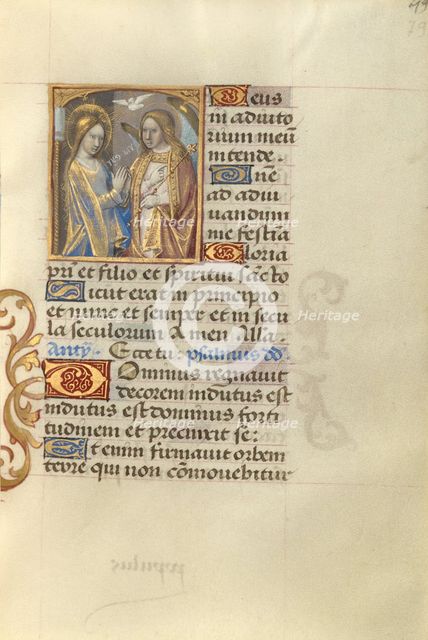 79
79
Deus
in adiuto
rium meū
intende.
Dne
ad adiu
uandum
me festīa
Gloria
pr̄i et filio et spiritui sācto
Sicut erat in principio
et nunc et semper et in secu
la seculorum Amen Alla.
Antҙ. Ecce tu. psalmus dd
Dominus regnauit
decorem indutus est
indutus est dominus forti
tudinem et precinxit se:
Et enim firmauit orbem
terre qui non cōmouebitur
populus
Heritage
Heritage
Heritage
Heritage
Heritage
Heritage